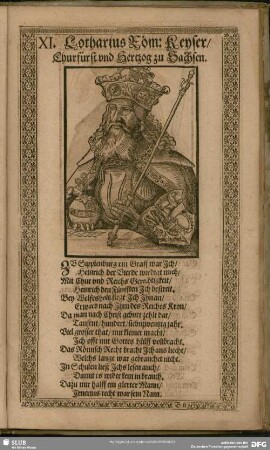 XI. Lotharius Röm: Keyser/
Churfürst vnd Hertzog zu Sachsen.
ZV Supplenburg ein Graff war Jch/
Heinrich der Vierde
Mit Chur vnd Reichs Gerechtigkeit/
Heinrich den Fünfften Jch bestreit,
Bey Welfesholtz
Erward nach jhm des Reiches Kron/
Da man nach Christ geburt zehlt dar/
Tausent, hundert,
Viel grosser that/ mit kleiner macht/
Jch offt mit Gottes hülff volbracht.
Das Römisch Recht bracht Jch ans liecht/
Welchs lange war gebrauchet nicht.
Jn Schulen ließ Jchs lesen auch/
Damit es wider kem in brauch.
Dazu mir halff ein glerter Mann/
Jrnerius recht war sein Nam.
SLUB